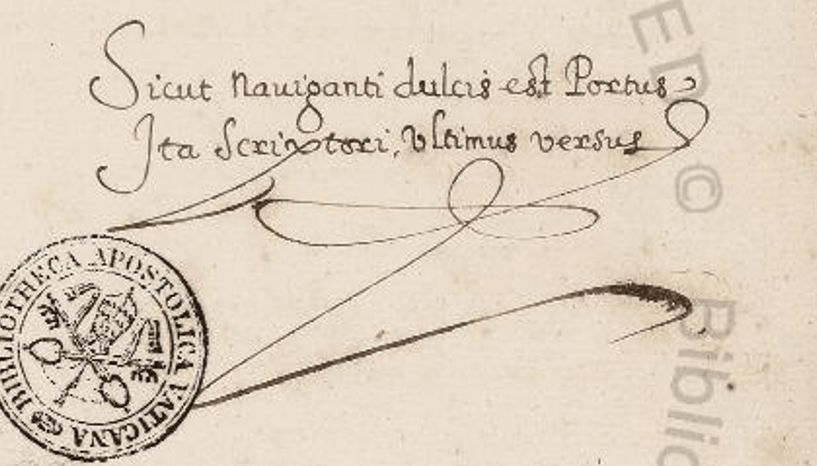 Sicut Nauiganti dulcis est Portus
Ita Scriptori, Vltimus versus
BIBLIOTHECA APOSTOLICA VATICANA
ED ©
Biblio